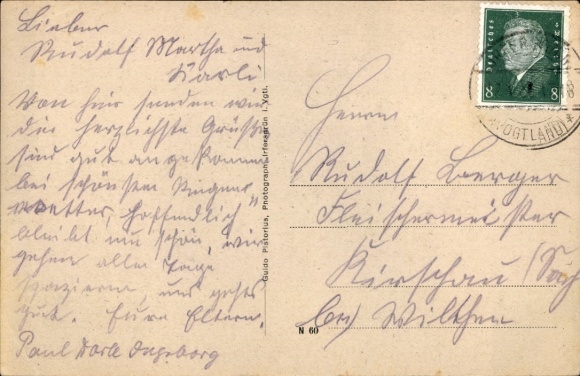 Lieber
Rudolf Martha und
Karli
Von hier senden wir
die herzlichste Grüsse
sind gut angekommen
bei schönstem
wetter, hoffendlich
bleibt es schön, wir
gehen alle Tage
spazieren, uns gehts
gut. Eure Eltern,
Paul Ingeborg
Guido Pistorius, Photograph, Irfersgrün i. Vgtl.
Herrn
Rudolf Berger
Fleischermeister
Kirschau /Sach
bei Wilthen
N 60
DEUTSCHES REICH
8 8
(VOGTLAND)